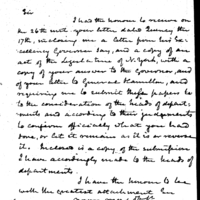 Sir
I had the honour to receive on
the 26th inst. your letter dated Sunday the
17th, inclosing me a letter from his Ex-
cellency Governor Jay, and a copy of an
act of the Legislature of N. York, with a
copy of your answer to the Governor, and
of your letter to General Hamilton, and
requiring me to submit these papers to
to the consideration of the heads of depart-
ments and according to their judgements
to confirm officially what you had
done, or let it remain as it is or reverse
it. Inclosed is a copy of the submission
I have accordingly made to the heads of
departments
I have the honour to be
with the greatest attachment Sir